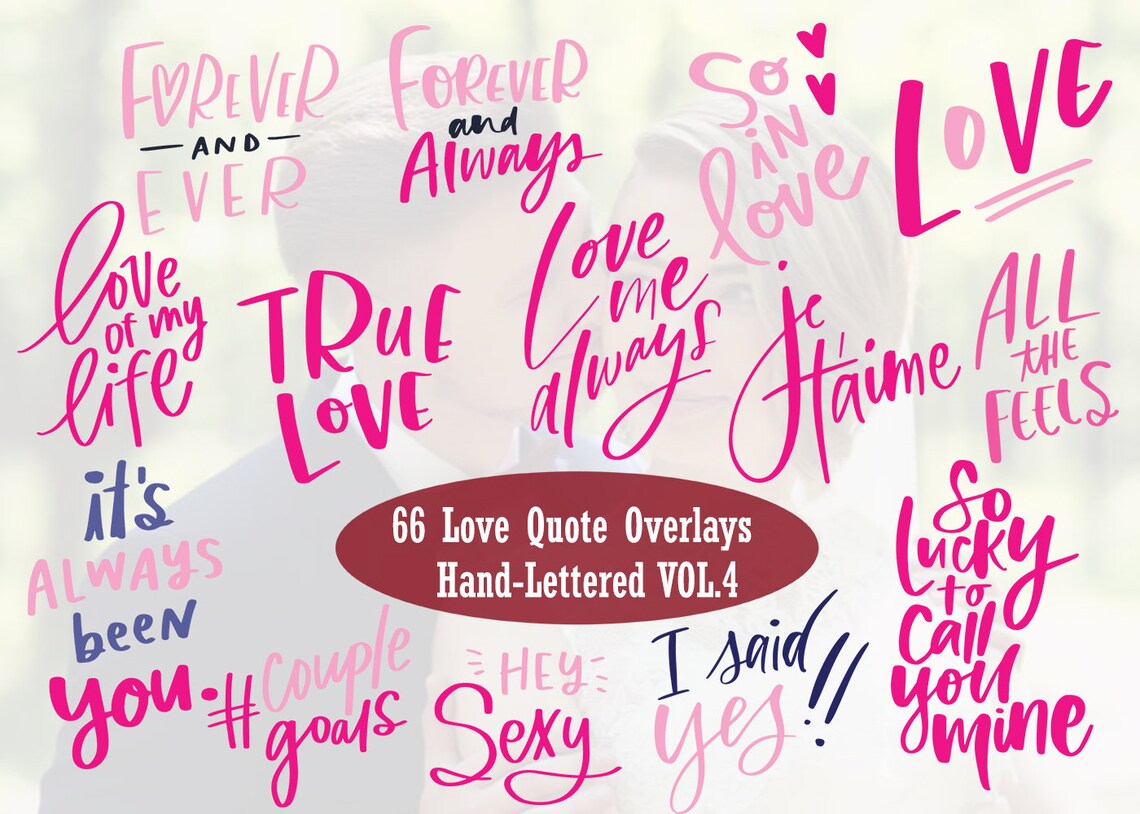 FOREVER
AND
EVER
FOREVER
and
Always
So
iN
love
LOVE
love
of my
life
TRUE
LOVE
Love
me
always
je
t'aime
ALL
THE
FEELS
it's
ALWAYS
been
you.
66 Love Quote Overlays
Hand-Lettered VOL.4
So
Lucky
to
Call
you
mine
#couple
goals
HEY
Sexy
I said
yes!!